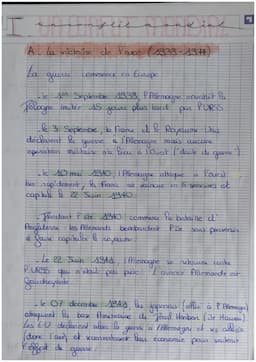 I
conflit mondial
A. La victoire de l'axe (1939-1941)
La guerre commence en Europe
- le 1er Septembre 1939, l'Allemagne envahit la
Pologne imitée 15 jours plus tard par l'URSS
- le 3 Septembre, la France et le Royaume Uni
déclarent la guerre à l'Allemagne mais aucune
opération militaire n'a lieu à l'ouest ("drôle de guerre")
- le 10 mai 1940, l'Allemagne attaque à l'ouest
très rapidement, la France est vaincue en 5 semaines et
capitule le 22 Juin 1940
- Pendant l'été 1940 commence la bataille d'
Angleterre : les Allemands bombardent l'île sans parvenir
à faire capituler le royaume
- le 22 Juin 1941, l'Allemagne se retourne contre
l'URSS qui n'était pas prête. L'avancée Allemande est
foudroyante.
- le 07 décembre 1941 les japonais (alliés à l'Allemagne)
attaquent la base Américaine de Pearl Harbor (île Hawaï)
Les E-U déclarent alors la guerre à l'Allemagne et ses alliés
(donc l'axe) et
économie pour soutenir
l'effort de guerre.